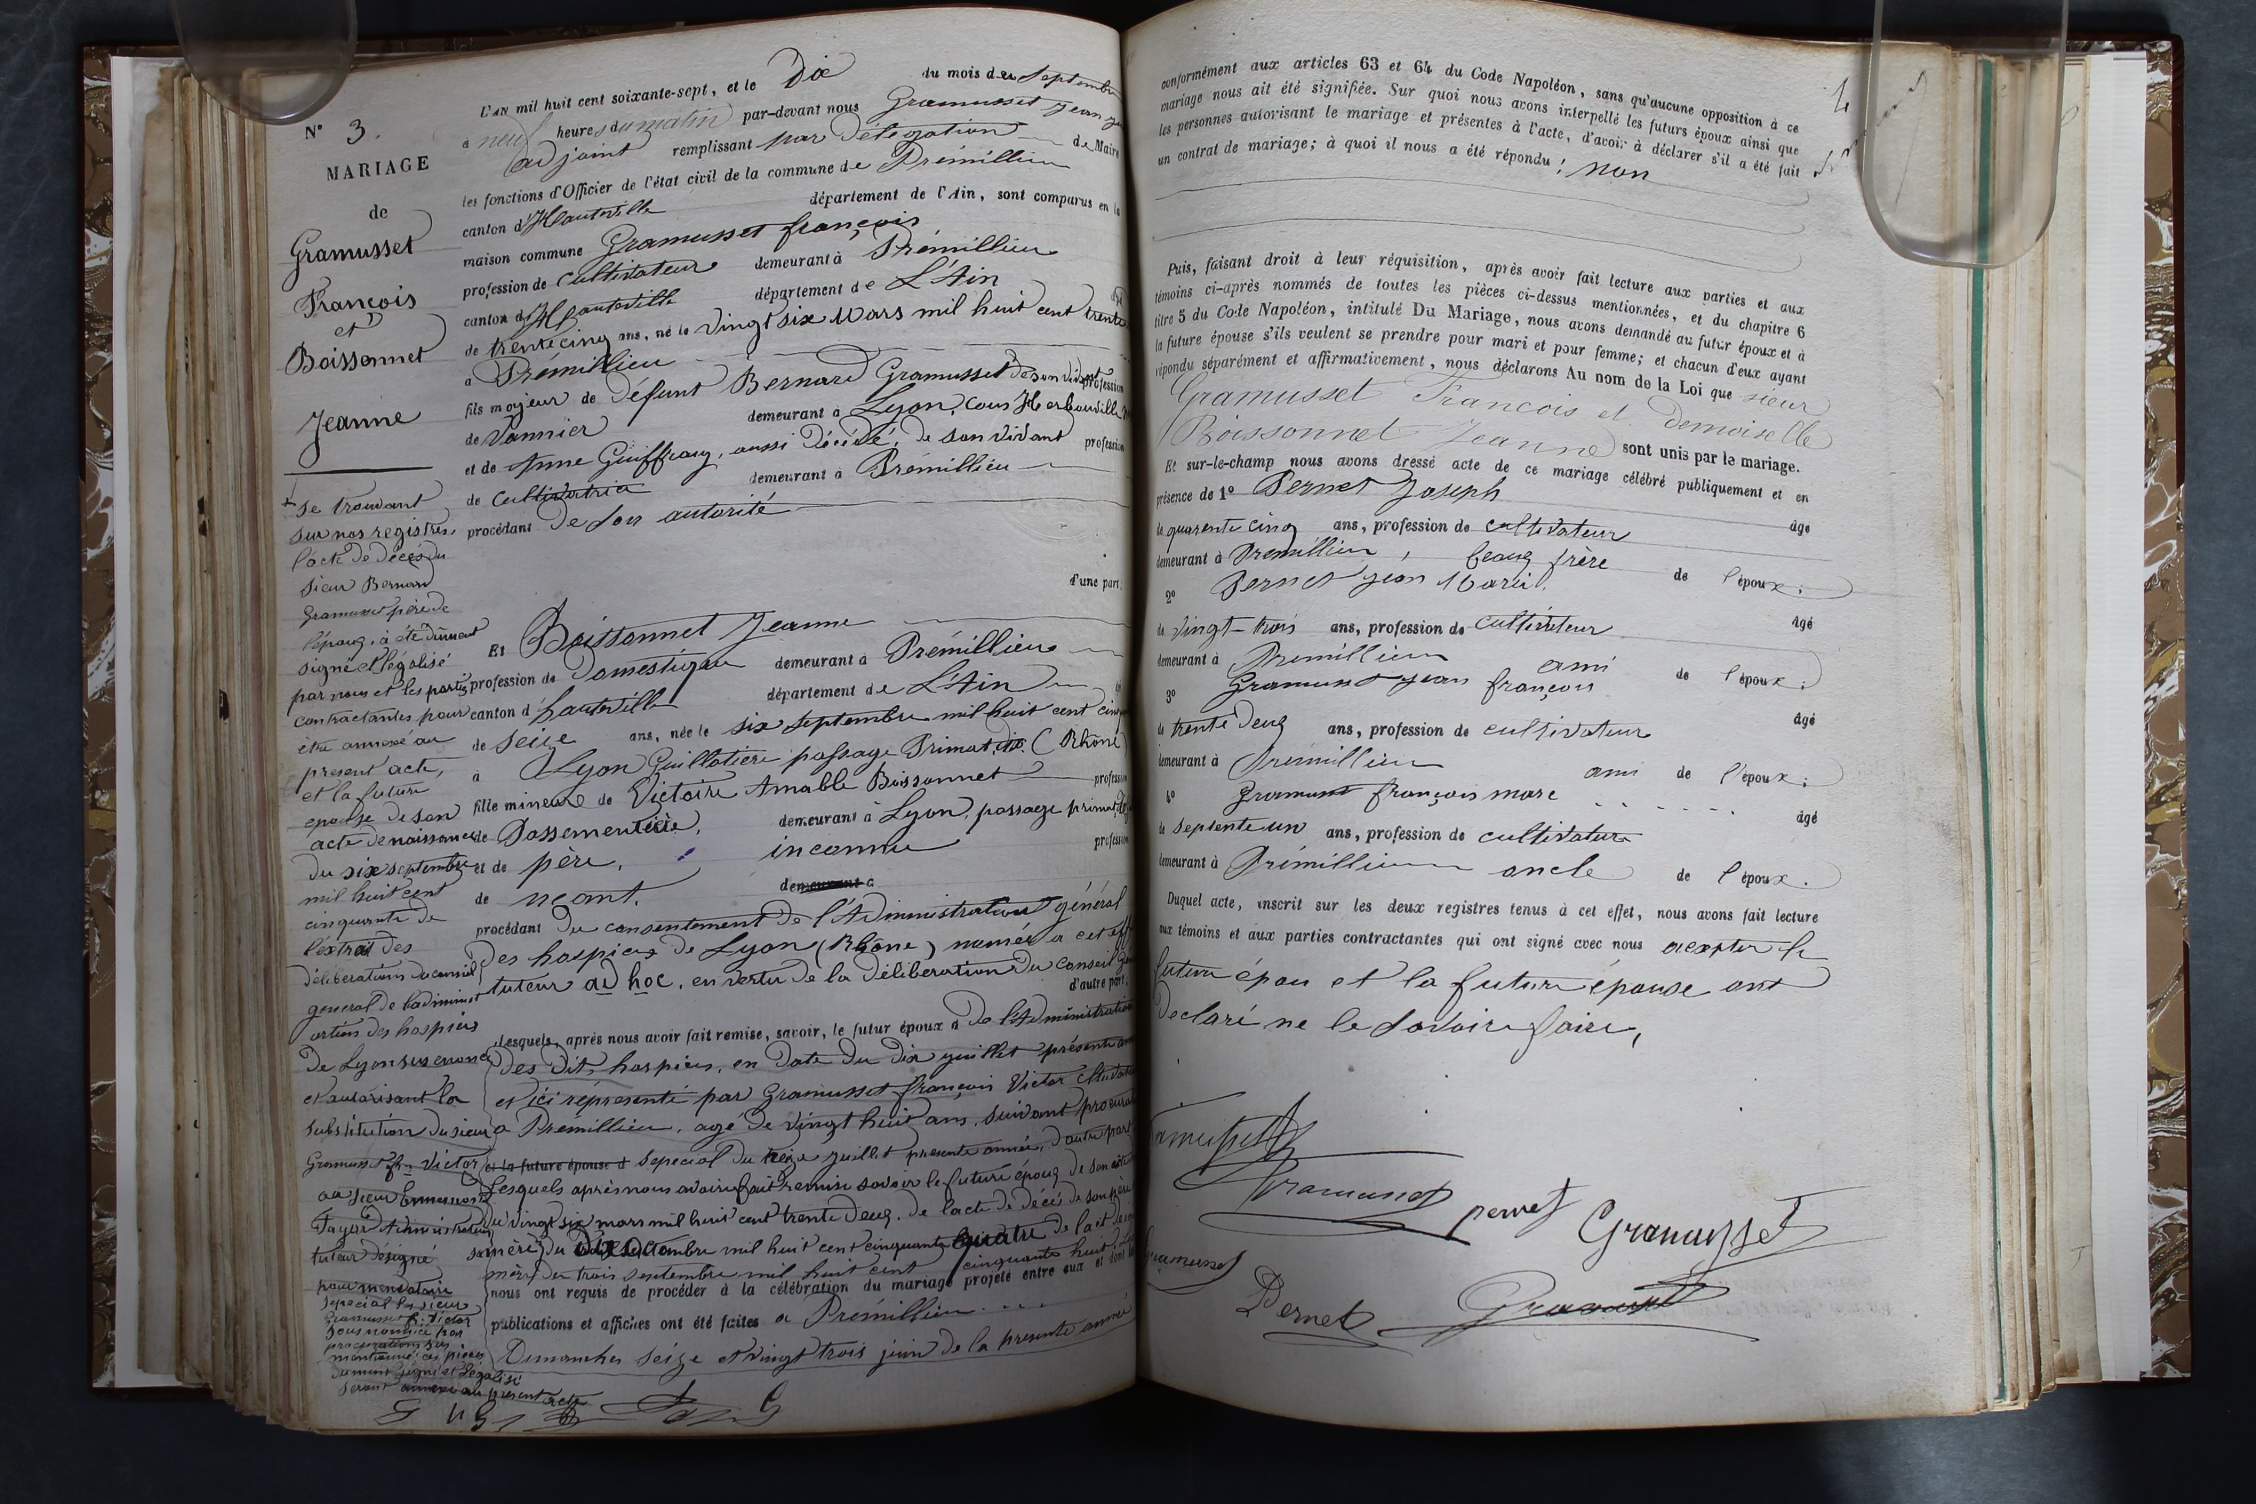 N° 3.
MARIAGE
de
Gramusset
François
et
Boissonnet
Jeanne
+ se trouvant
sur nos registres
l'acte de décès du
sieur Bernard
Gramusset père de
l'époux, à été dûment
signé et légalisé
par nous et les partis
contractantes pour
être annexé au
present acte,
et la future
epouse de son
acte de naissance
du six septembre
mil huit cent
cinquante de
l'éxtrait des
déliberations du conseil
general de l'administ
ration des hospices
De Lyon sus enoncé
et autorisant la
substitution du sieur
Gramusset fçs Victor
au sieur
Fayard Administrateur
tuteur désigné
pour mendataire
sepecial le sieur
Gramusset f. Victor
sus
mentionné ces pièces
dument signé et légalisé
seront annexé au présent acte
L'AN mil huit cent soixante-sept, et le Dix du mois de Septembre
à neuf heures du matin par-devant nous Gramusset Jean
adjoint remplissant par Délégation de Maire
les fonctions d'Officier de l'état civil de la commune de Prémillieu
canton d'Hauteville département de l'Ain, sont comparus en la
maison commune Gramusset françois
profession de cultivateur demeurant à Prémillieu
canton d'Hauteville département de L'Ain
de trente cinq ans, né le vingt six Mars mil huit cent trente
à Prémillieu
fils majeur de défunt Bernard Gramusset de son vivant profession
de Vannier demeurant à Lyon, cours Herbouville
et de Anne Guiffray, aussi décédé, de son vivant profession
de cultivatrice demeurant à Prémillieu
procédant de son autorité
d'une part.
Et Boissonnet Jeanne
profession de Domestique demeurant à Prémillieu
canton d'hauteville département de L'Ain
de seize ans, née le six septembre mil huit cent
à Lyon Guillotière passage Primat, dit. (Rhône)
fille mineure de Victoire Amable Boissonnet profession
de Passementière, demeurant à Lyon, passage primat
et de père, inconnu profession
de neant. demeurant a
procédant du consentement de l'Administration général
des hospices de Lyon (Rhône) nommér a cet
tuteur ad hoc, en vertu de la déliberation du conseil
d'autre part.
Lesquels, après nous avoir fait remise, savoir, le futur époux d de l'Administration
des dits hospices, en date du dix juillet présente
et ici réprésenté par Gramusset françois Victor
a Premillieu, agé de vingt huit ans, suivant
et la future épouse d sepecial du treize juillet presente année, d'autre part
Lesquels après nous avoir fait remise savoir le future époux de son
du vingt six mars mil huit cent trente deux. de l'acte de décès de son père
mère du mil huit cent cinquante quatre de l'act de
mère du trois septembre mil huit cent cinquante huit
nous ont requis de procéder à la célébration du mariage projeté entre eux et dont
publications et affiches ont été faites a Prémillieu
Dimanches seize et vingt trois juin de la presente année
conformément aux articles 63 et 64 du Code Napoléon, sans qu'aucune opposition à ce
mariage nous ait été signifiée. Sur quoi nous avons interpellé les futurs époux ainsi que
les personnes autorisant le mariage et présentes à l'acte, d'avoir à déclarer s'il a été fait
un contrat de mariage; à quoi il nous a été répondu: non
Puis, faisant droit à leur réquisition, après avoir fait lecture aux parties et aux
témoins ci-après nommés de toutes les pièces ci-dessus mentionnées, et du chapitre 6
titre 5 du Code Napoléon, intitulé Du Mariage, nous avons demandé au futur époux et à
la future épouse s'ils veulent se prendre pour mari et pour femme; et chacun d'eux ayant
répondu séparément et affirmativement, nous déclarons Au nom de la Loi que sieur
Gramusset Francois et Demoiselle
Boissonnet Jeanne sont unis par le mariage.
Et sur-le-champ nous avons dressé acte de ce mariage célébré publiquement et en
présence de 1° Pernet Joseph âgé
de quarente cinq ans, profession de cultivateur
demeurant à Premillieu, beaux frère de l'époux.
2° Pernet Jean Marie. âgé
de vingt-trois ans, profession de cultivateur
demeurant à Premillieu ami de l'époux.
3° Gramusset Jean françois âgé
de trente deux ans, profession de cultivateur
demeurant à Prémillieu ami de l'époux.
4° Gramusset françois marc âgé
de septente un ans, profession de cultivateur
demeurant à Prémillieu oncle de l'époux.
Duquel acte, inscrit sur les deux registres tenus à cet effet, nous avons fait lecture
aux témoins et aux parties contractantes qui ont signé avec nous a exepter le
future épou et la future épouse ont
declaré ne le savoir faire,
Gramusset
Gramusset pernet Gramusset
Gramusset
Pernet Gramusset